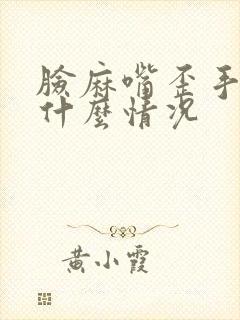 臉麻嘴歪手
什麼情况
黄小霞